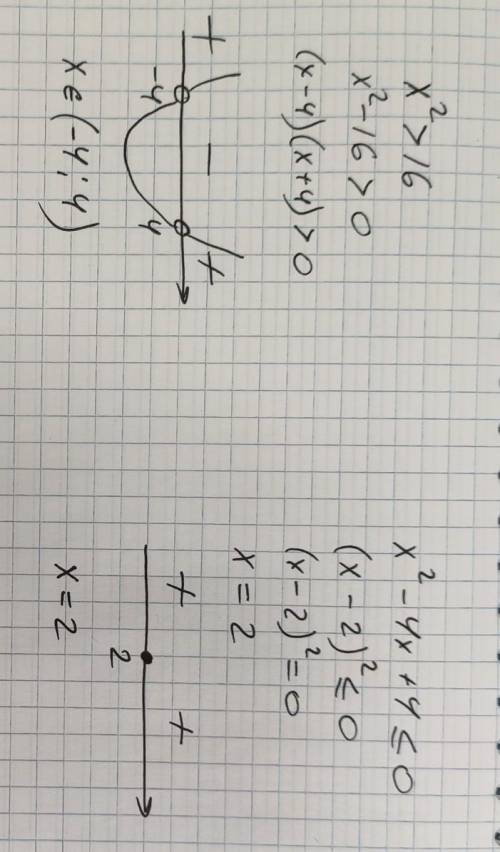 x² > 16
x² - 16 > 0
(x - 4)(x + 4) > 0
+ - +
-4 4
x ∈ (-4; 4)
x² - 4x + 4 ≤ 0
(x - 2)² ≤ 0
(x - 2)² = 0
x = 2
+ +
2
x = 2